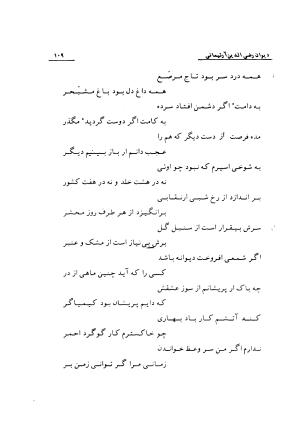 دیوان رضی الدین آرتیمانی
۱۰۹
همه درد سر بود تاج مرصّع
همه داغ دل بود باغ مشجّر
به دامت اگر دشمن افتاد سرده
به کامت اگر دوست گردید مگذر
مده فرصت از دست دیگر که هم را
عجب دانم ار باز بینیم دیگر
به شوخی اسیرم که نبود چو اوئی
نه در هشت خلد و نه در هفت کشور
بر اندازد از رخ شبی ار نقابی
برانگیزد از هر طرف روز محشر
سرش بیقرار است از سنبل گل
برش بی نیاز است از مشک و عنبر
اگر شمعی افروخت دیوانه باشد
کسی را که آید چنین ماهی از در
چه باک ار پریشانم از سوز عشقش
که دایم پریشان بود کیمیاگر
کند آتشم کار باد بهاری
چو خاکسترم کار گوگرد احمر
ندارم اگر من سر وعظ خواندن
زمانی مرا گر توانی زمن بر